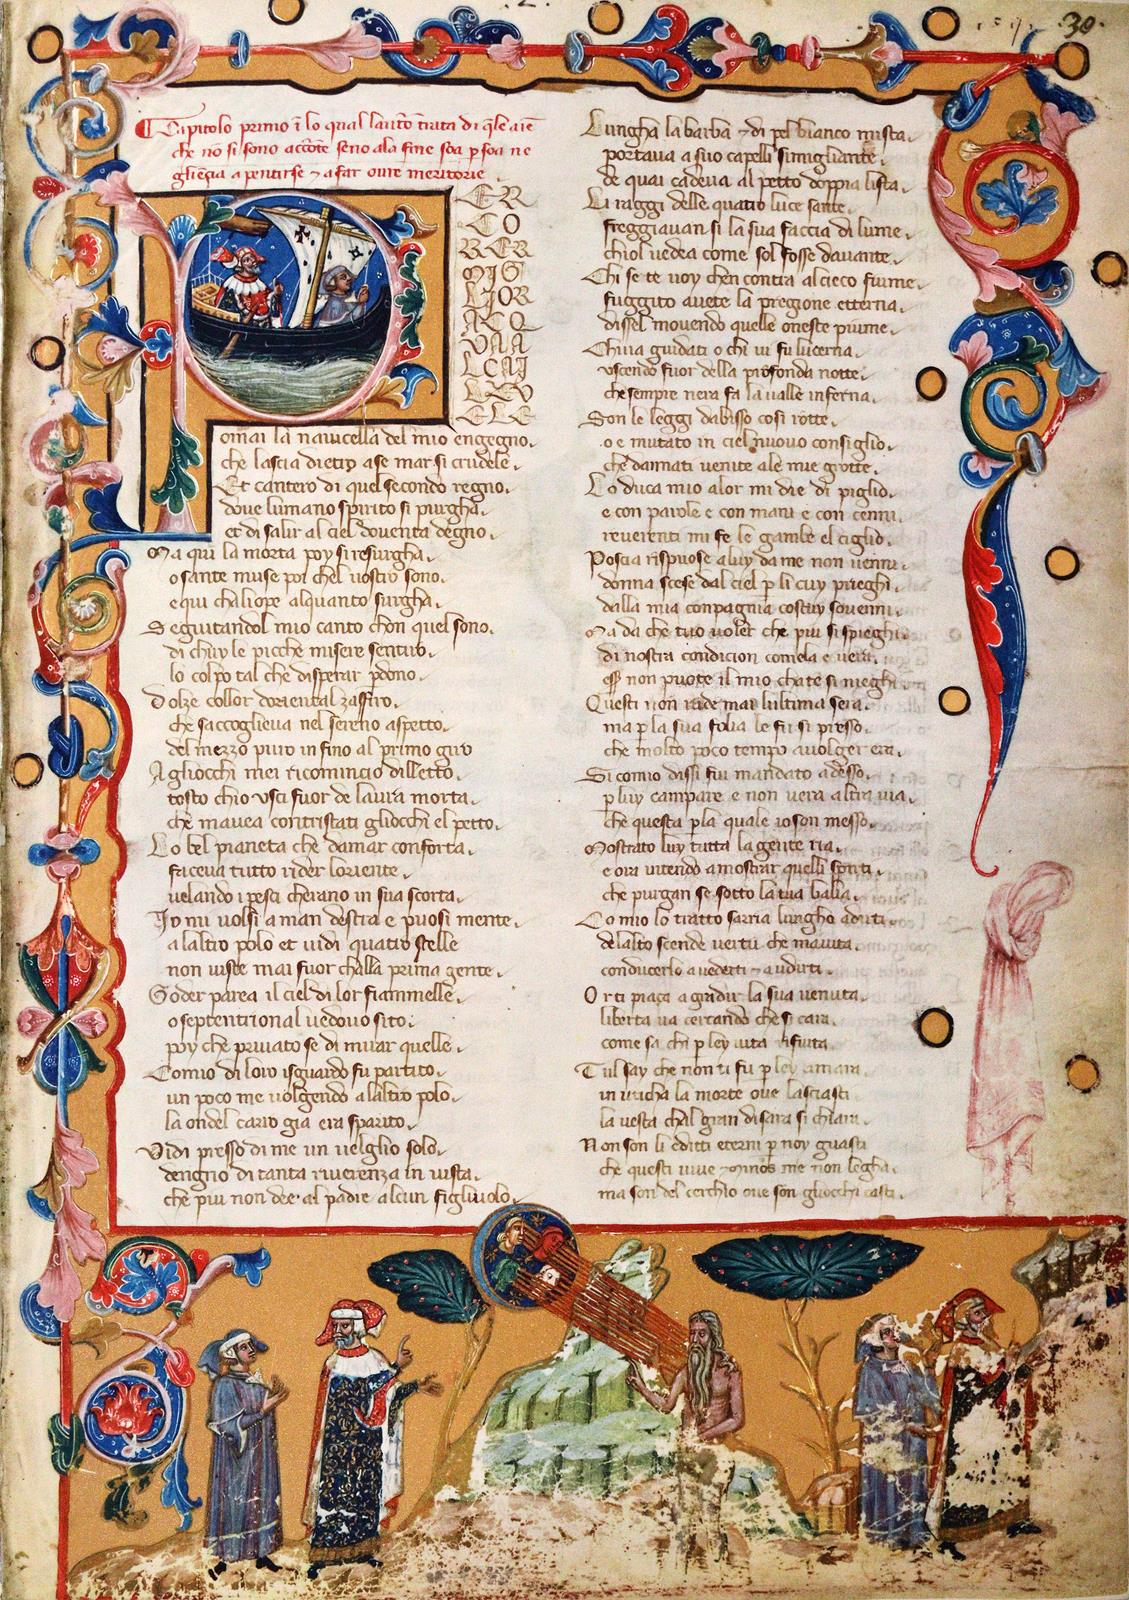 30
Capitolo primo ī lo qual lauto trata di qͥle aīe
che nō si sono accōte seno ala fine soa p soa ne
gligēcia a pentirse ⁊ afar oure meritorie
ER
CO
RER
MIG
LIOR
ACQ
VAA
LCAI
LEV
ELE
omai la nauicella del mio engegno.
che lascia dietro ase mar si crudele.
Et cantero di quel secondo regno.
doue lumano spirito si purgha.
et di salir al ciel douenta degno.
Ma qui la morta poysi resurgha.
o sante muse poi chel uostro sono.
e qui chaliope alquanto surgha.
Seguitandol mio canto chon quel sono.
di chuy le picche misere sentiro.
lo colpo tal che disperar pdono.
Dolze collor doriental zaffiro.
che saccoglieua nel sereno aspetto.
del mezzo puro in fino al primo giro
Agliocchi mei ricomincio dilletto.
tosto chio usci fuor de laura morta.
che mauea contristati gliocchi el petto.
Lo bel pianeta che damar conforta.
faceua tutto rider loriente.
uelando i pesci cherano in sua scorta.
Iy mi uolsi a man destra e puosi mente.
a laltro polo et uidi quatro stelle
non uiste mai fuor challa prima gente.
Goder parea il ciel di lor fiammelle.
o septentrional uedouo sito.
poy che priuato se di mirar quelle.
Comio di loro isguardo fu partito.
un poco me uolgendo alaltro polo.
la ondel carro gia era sparito.
Vidi presso di me un uelglio solo.
dengno di tanta riuerenza in uista.
che piu non dee al padre alcun figliuolo.
Lungha la barba ⁊ di pel bianco mista.
portaua a suo capelli simigliante.
de quai cadeua al petto doppia lista.
Li raggi delle quatro luce sante.
freggiauan si la sua faccia di lume.
chiol uedea come sol fosse dauante.
Chi se te uoy chen contra al cieco fiume
fuggito auete la pregione etterna.
dissel mouendo quelle oneste piume.
Chiua guidati o chi ui fu lucerna.
uscendo fuor della profonda notte.
che sempre nera fa la ualle inferna.
Son le leggi dabisso cosi rotte.
o e mutato in ciel nuouo consiglio.
che dannati uenite ale mie grotte.
Lo duca mio alor mi die di piglio.
e con parole e con mani e con cenni.
reuerenti mi fe le gambe el ciglio.
Poscia rispuose aluy da me non uenni.
donna scese dal ciel p li cuy prieghi.
dalla mia conpagnia costuy souenni.
Ma da che tuo uoler che piu si spieghi
di nostra condicion comela e uera.
esser non puote il mio chate si nieghi.
Questi non uide mai lultima sera.
ma p la sua folia le fu si presso.
che molto poco tempo auolger era.
Si comio dissi fui mandato adesso.
p luy campare e non uera altra uia.
che questa p la quale io son messo.
Mostrato luy tutta la gente ria.
e ora intendo amostrar quelli spirti
che purgan se sotto la tua balia.
Comio lo tratto sarria lungho adirti.
delalto scende uertu che mauita.
conducerlo auederti ⁊ audirti.
Or ti piaça a gradir la sua uenuta.
liberta ua cercando che si cara.
come sa chi p ley uita rifiuta.
Tul say che non ti fu p ley amara.
in uticha la morte oue lasciasti
la uesta chal gran di sara si chiara.
Non son li editti eterni p noy guasti
che questi uiue ⁊ minos me non legha.
ma son del cerchio oue son gliocchi casti.